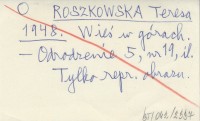 O ROSZKOWSKA Teresa
1948. Wieś w górach.
- Odrodzenie 5, nr 19, il.
Tylko repr. obrazu.